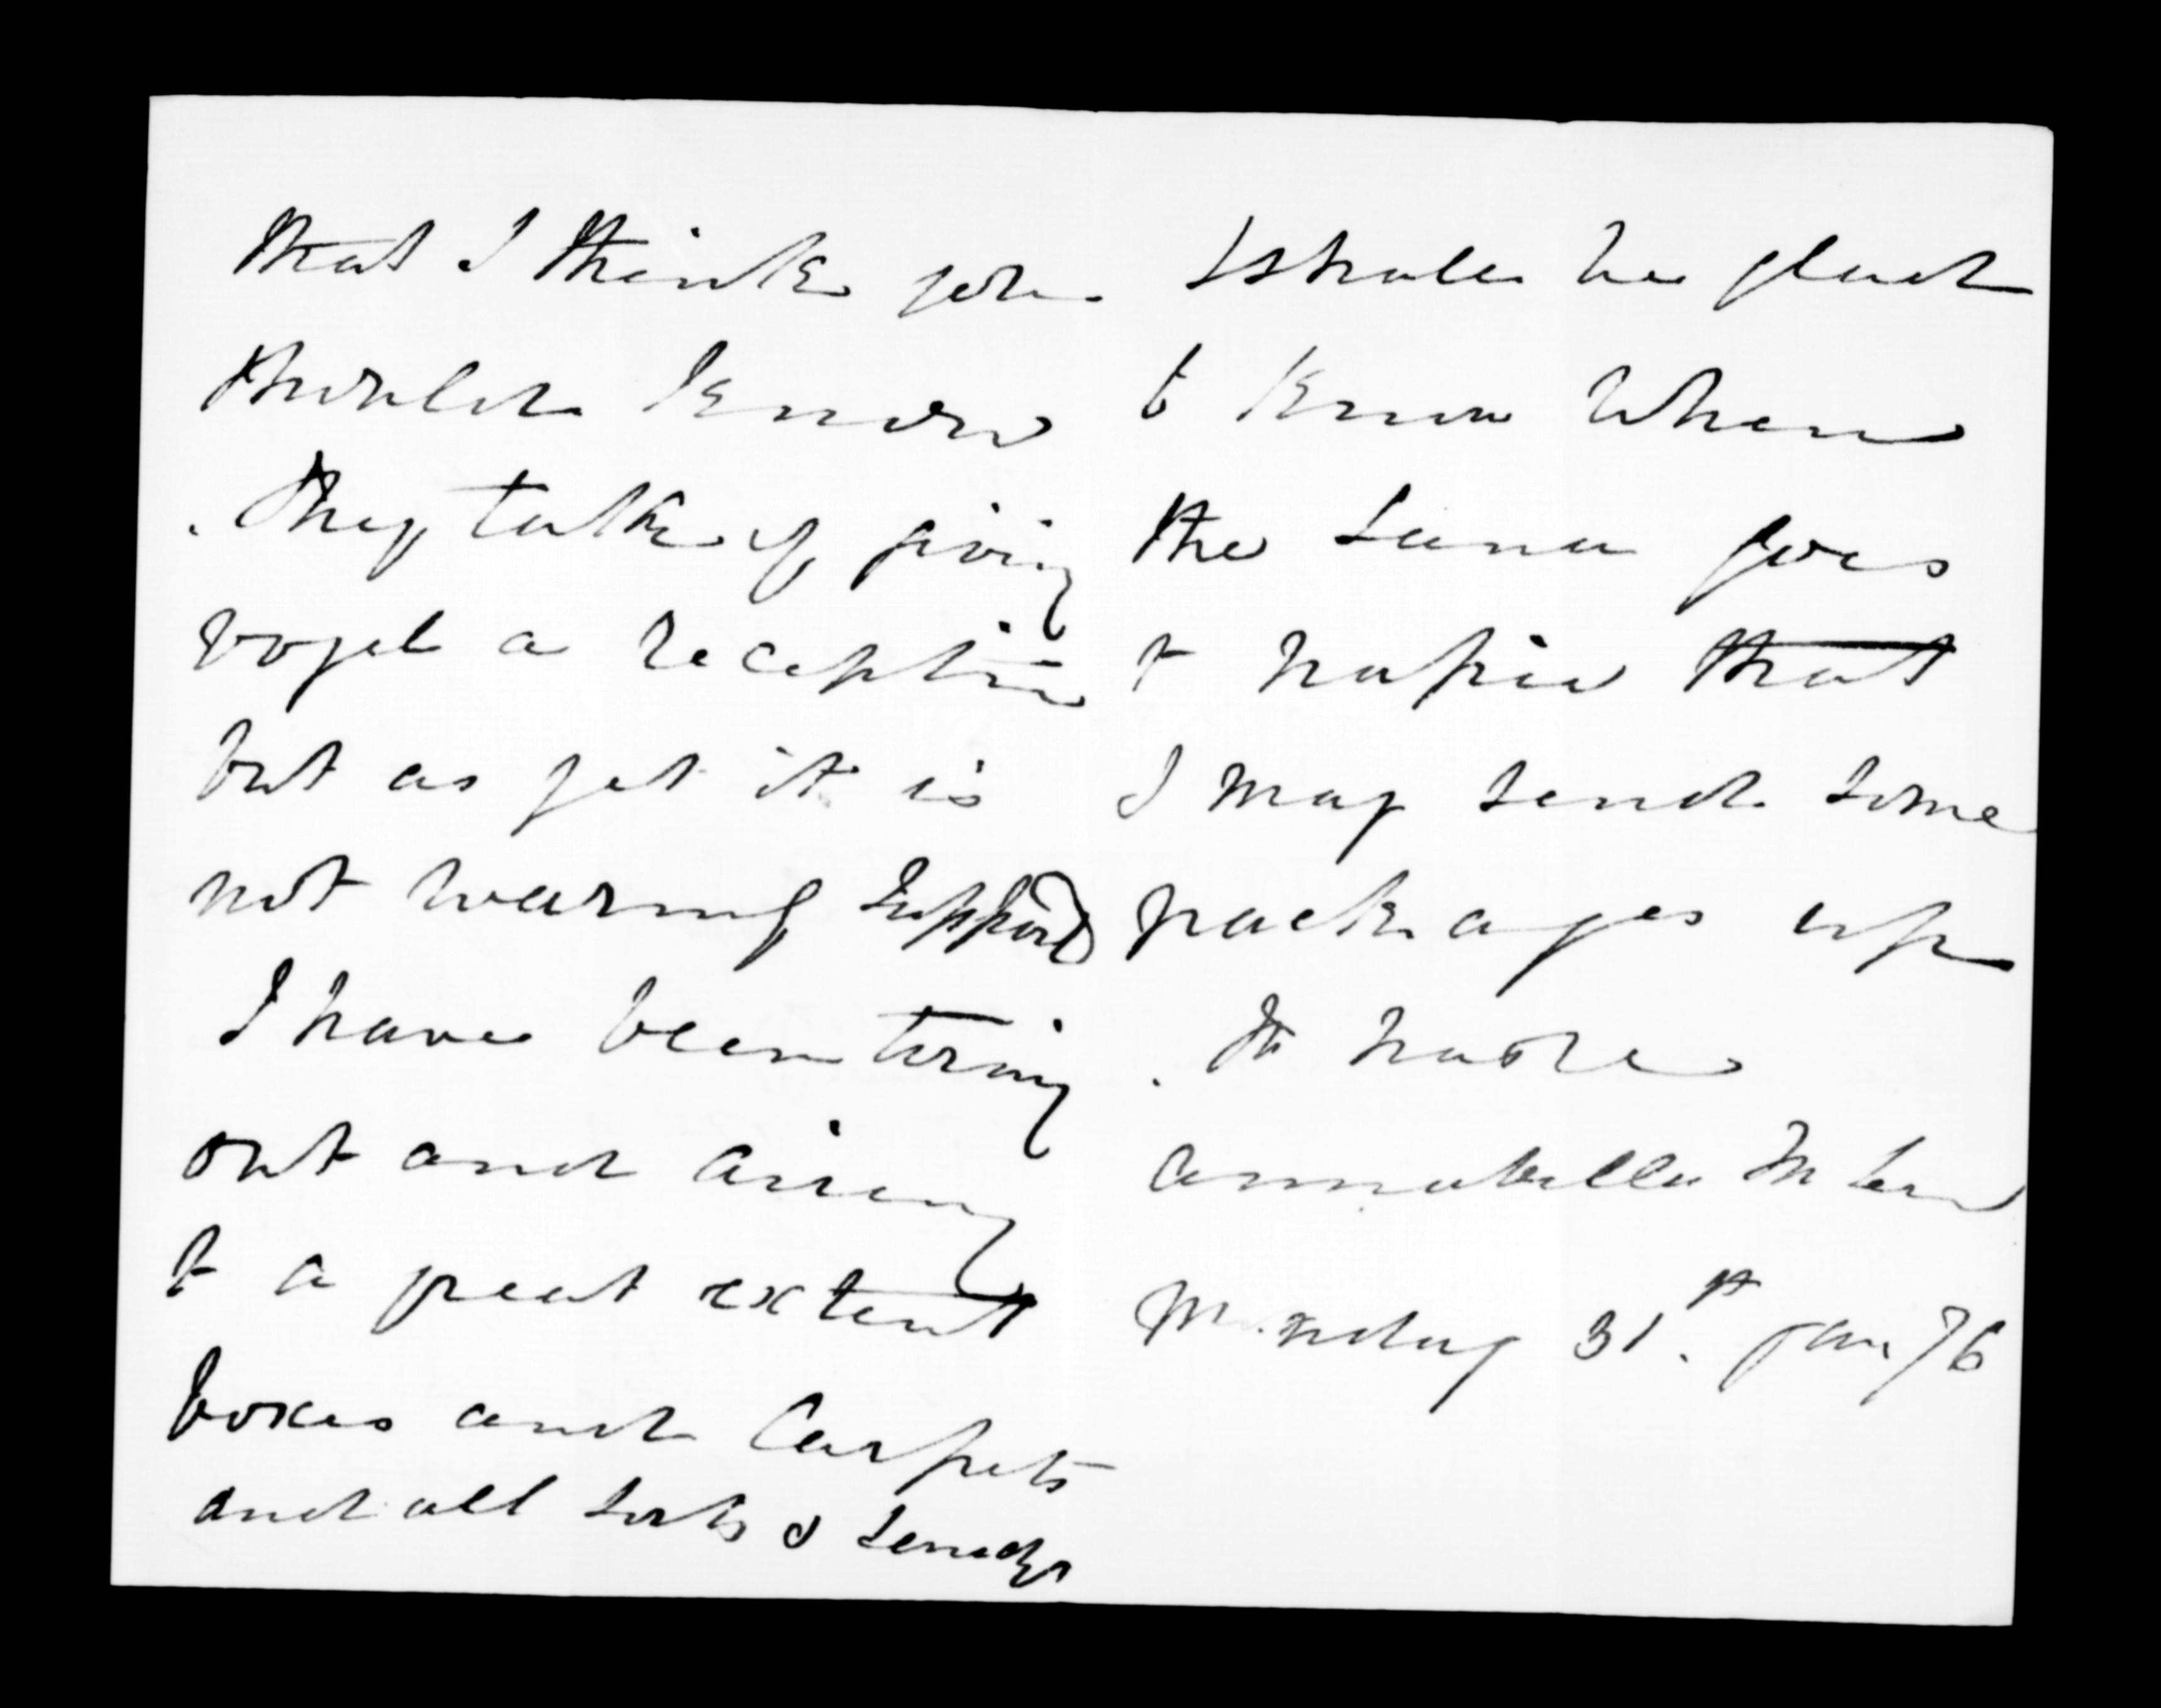 that I think you
should know
. They talk of giving
vogel a reception
but as yet it is
not warmly support^d
I have been turning
out and airing
to a great extent
boxes and Carpets
and all sorts of
I shall be glad
to know when
the Luna goes
to napier that
I may send some
packages up
. In haste
annabella McLean
Monday 31.st Jan 76